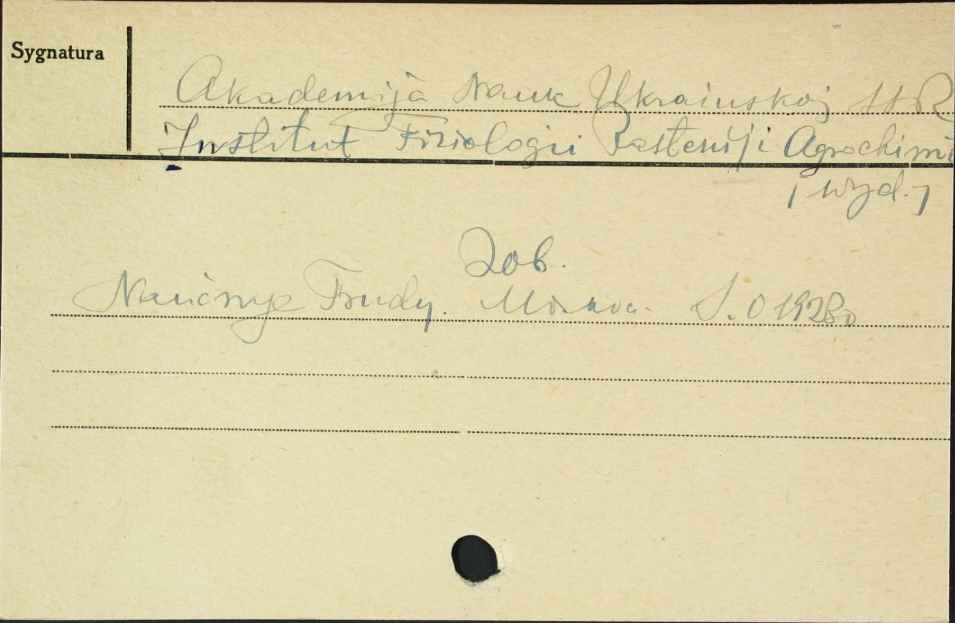 Sygnatura
Akademija Nauk Ukrainskoj SSR
Institut Fiziologii Rastenij i Agrochimi
/wyd./
Zob.
Naučnye Trudy. Moskva. S. 0 1928